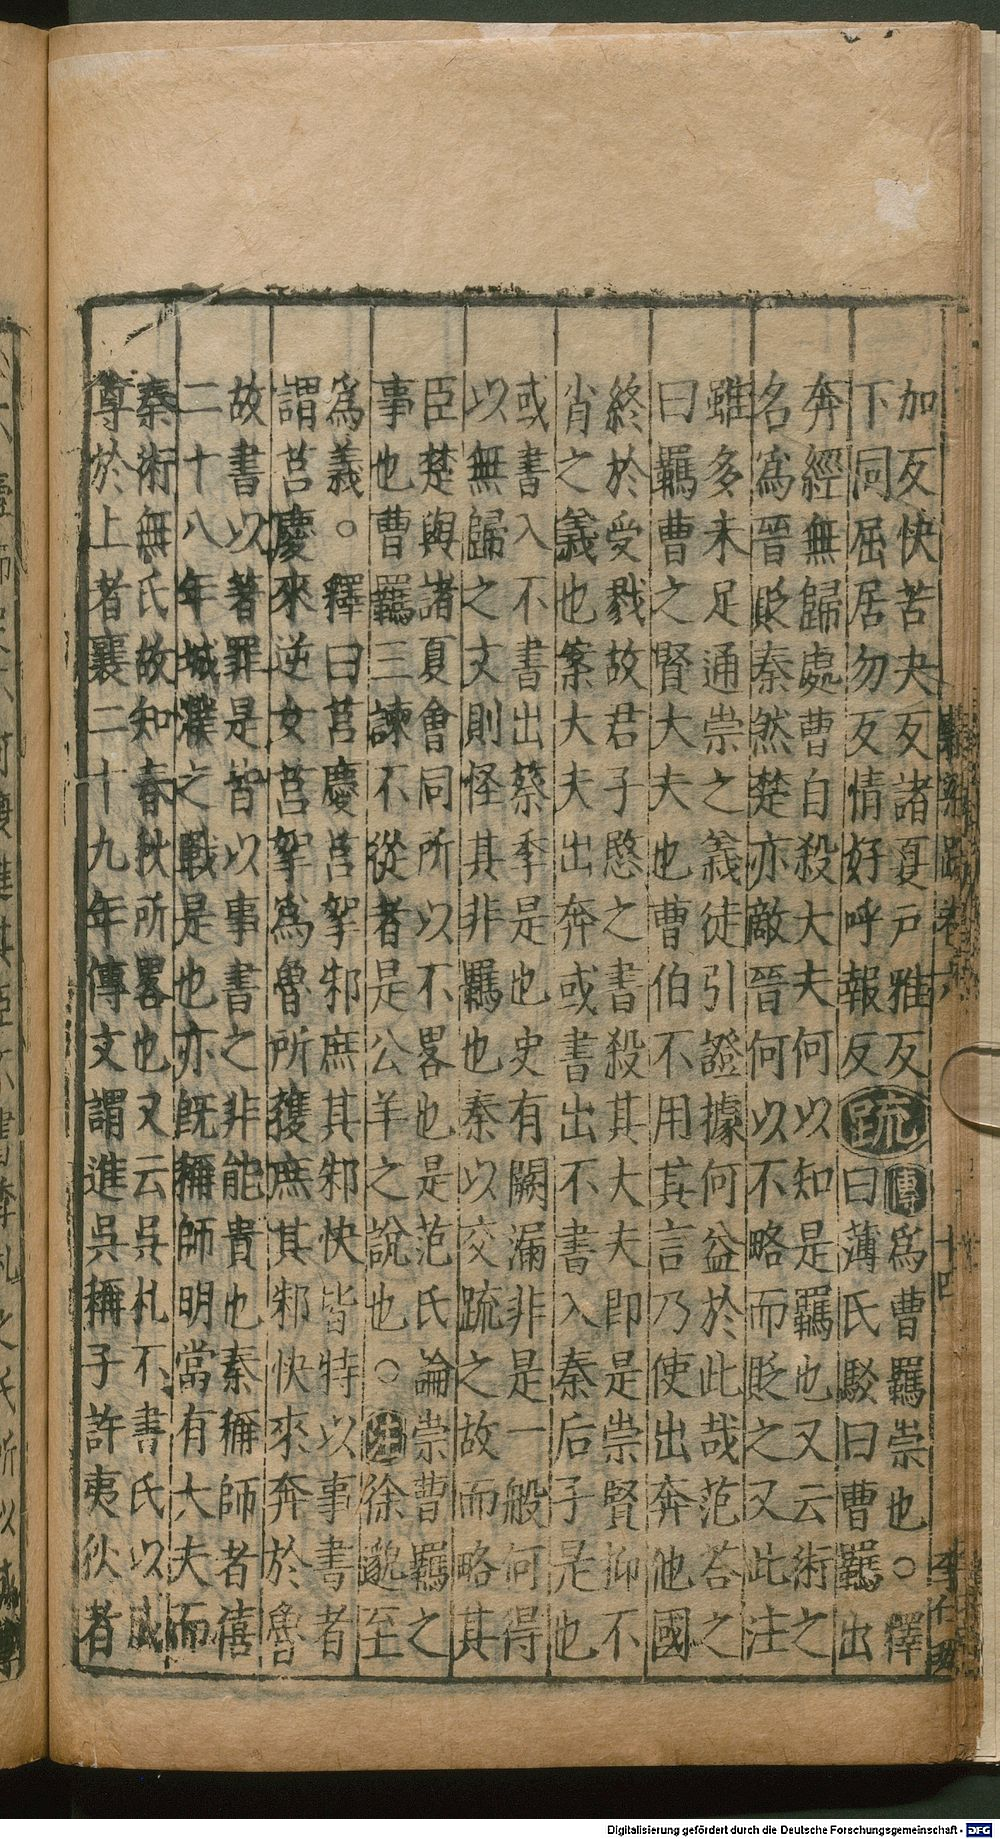 加反快苦夬反諸夏戸雅反疏傳爲曹羈崇也○釋
下同屈居勿反情好呼報反曰薄氏駁曰曹羈出
奔經無歸處曹自殺大夫何以知是羈也又云術之
名爲晉貶秦然楚亦敵晉何以不略而貶之又此注
雖多未足通崇之義徒引證據何益於此哉范荅之
曰羈曹之賢大夫也曹伯不用其言乃使出奔他國
終於受戮故君子愍之書殺其大夫即是崇賢抑不
肖之義也案大夫出奔或書出不書入秦后子是也
或書入不書出蔡季是也史有闕漏非是一般何得
以無歸之文則怪其非羈也秦以交疏之故而略其
臣楚與諸夏會同所以不畧也是范氏論崇曹羈之
事也曹羈三諫不從者是公羊之說也○注徐邈至
爲義○釋曰莒慶莒挐邾庶其邾快皆特以事書者
謂莒慶來逆女莒挐爲魯所獲庶其邾快來奔於魯
故書以著罪是皆以事書之非能貴也秦稱師者僖
二十八年城濮之戰是也亦旣稱師明當有大夫而
秦術無氏故知春秋所畧也又云吳札不書氏以成
尊於上者襄二十九年傳文謂進吳稱子許夷狄者
十四
Digitalisierung gefördert durch die Deutsche Forschungsgemeinschaft - DFG